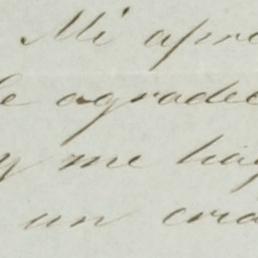 Mi apre
le agradec
y me hag
un cra